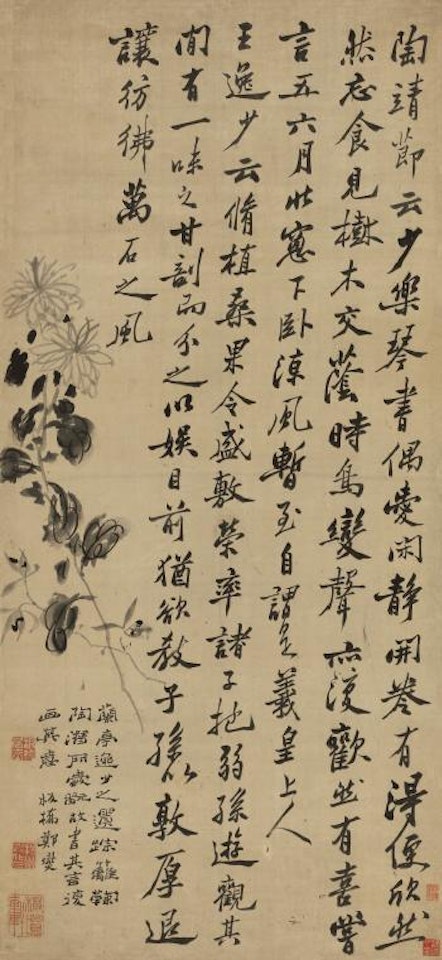 陶靖節云少樂琴書偶愛閑靜開卷有得便欣然
然忘食見樹木交蔭時鳥變聲亦復歡然有喜嘗
言五六月北窻下臥涼風暫至自謂是羲皇上人
王逸少云脩植桑果令盛敷榮率諸子抱弱孫遊觀其
間有一味之甘割而分之以娛目前猶欲教子孫以敦厚退
讓彷彿萬石之風
蘭亭逸少之遺踪籬菊
陶潛所愛玩故書其言復
画 板橋鄭燮